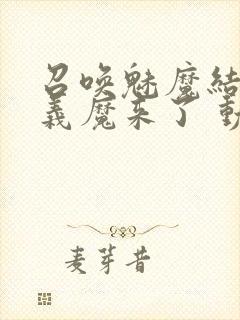 召唤魅魔结
義魔来了 動
麦芽昔